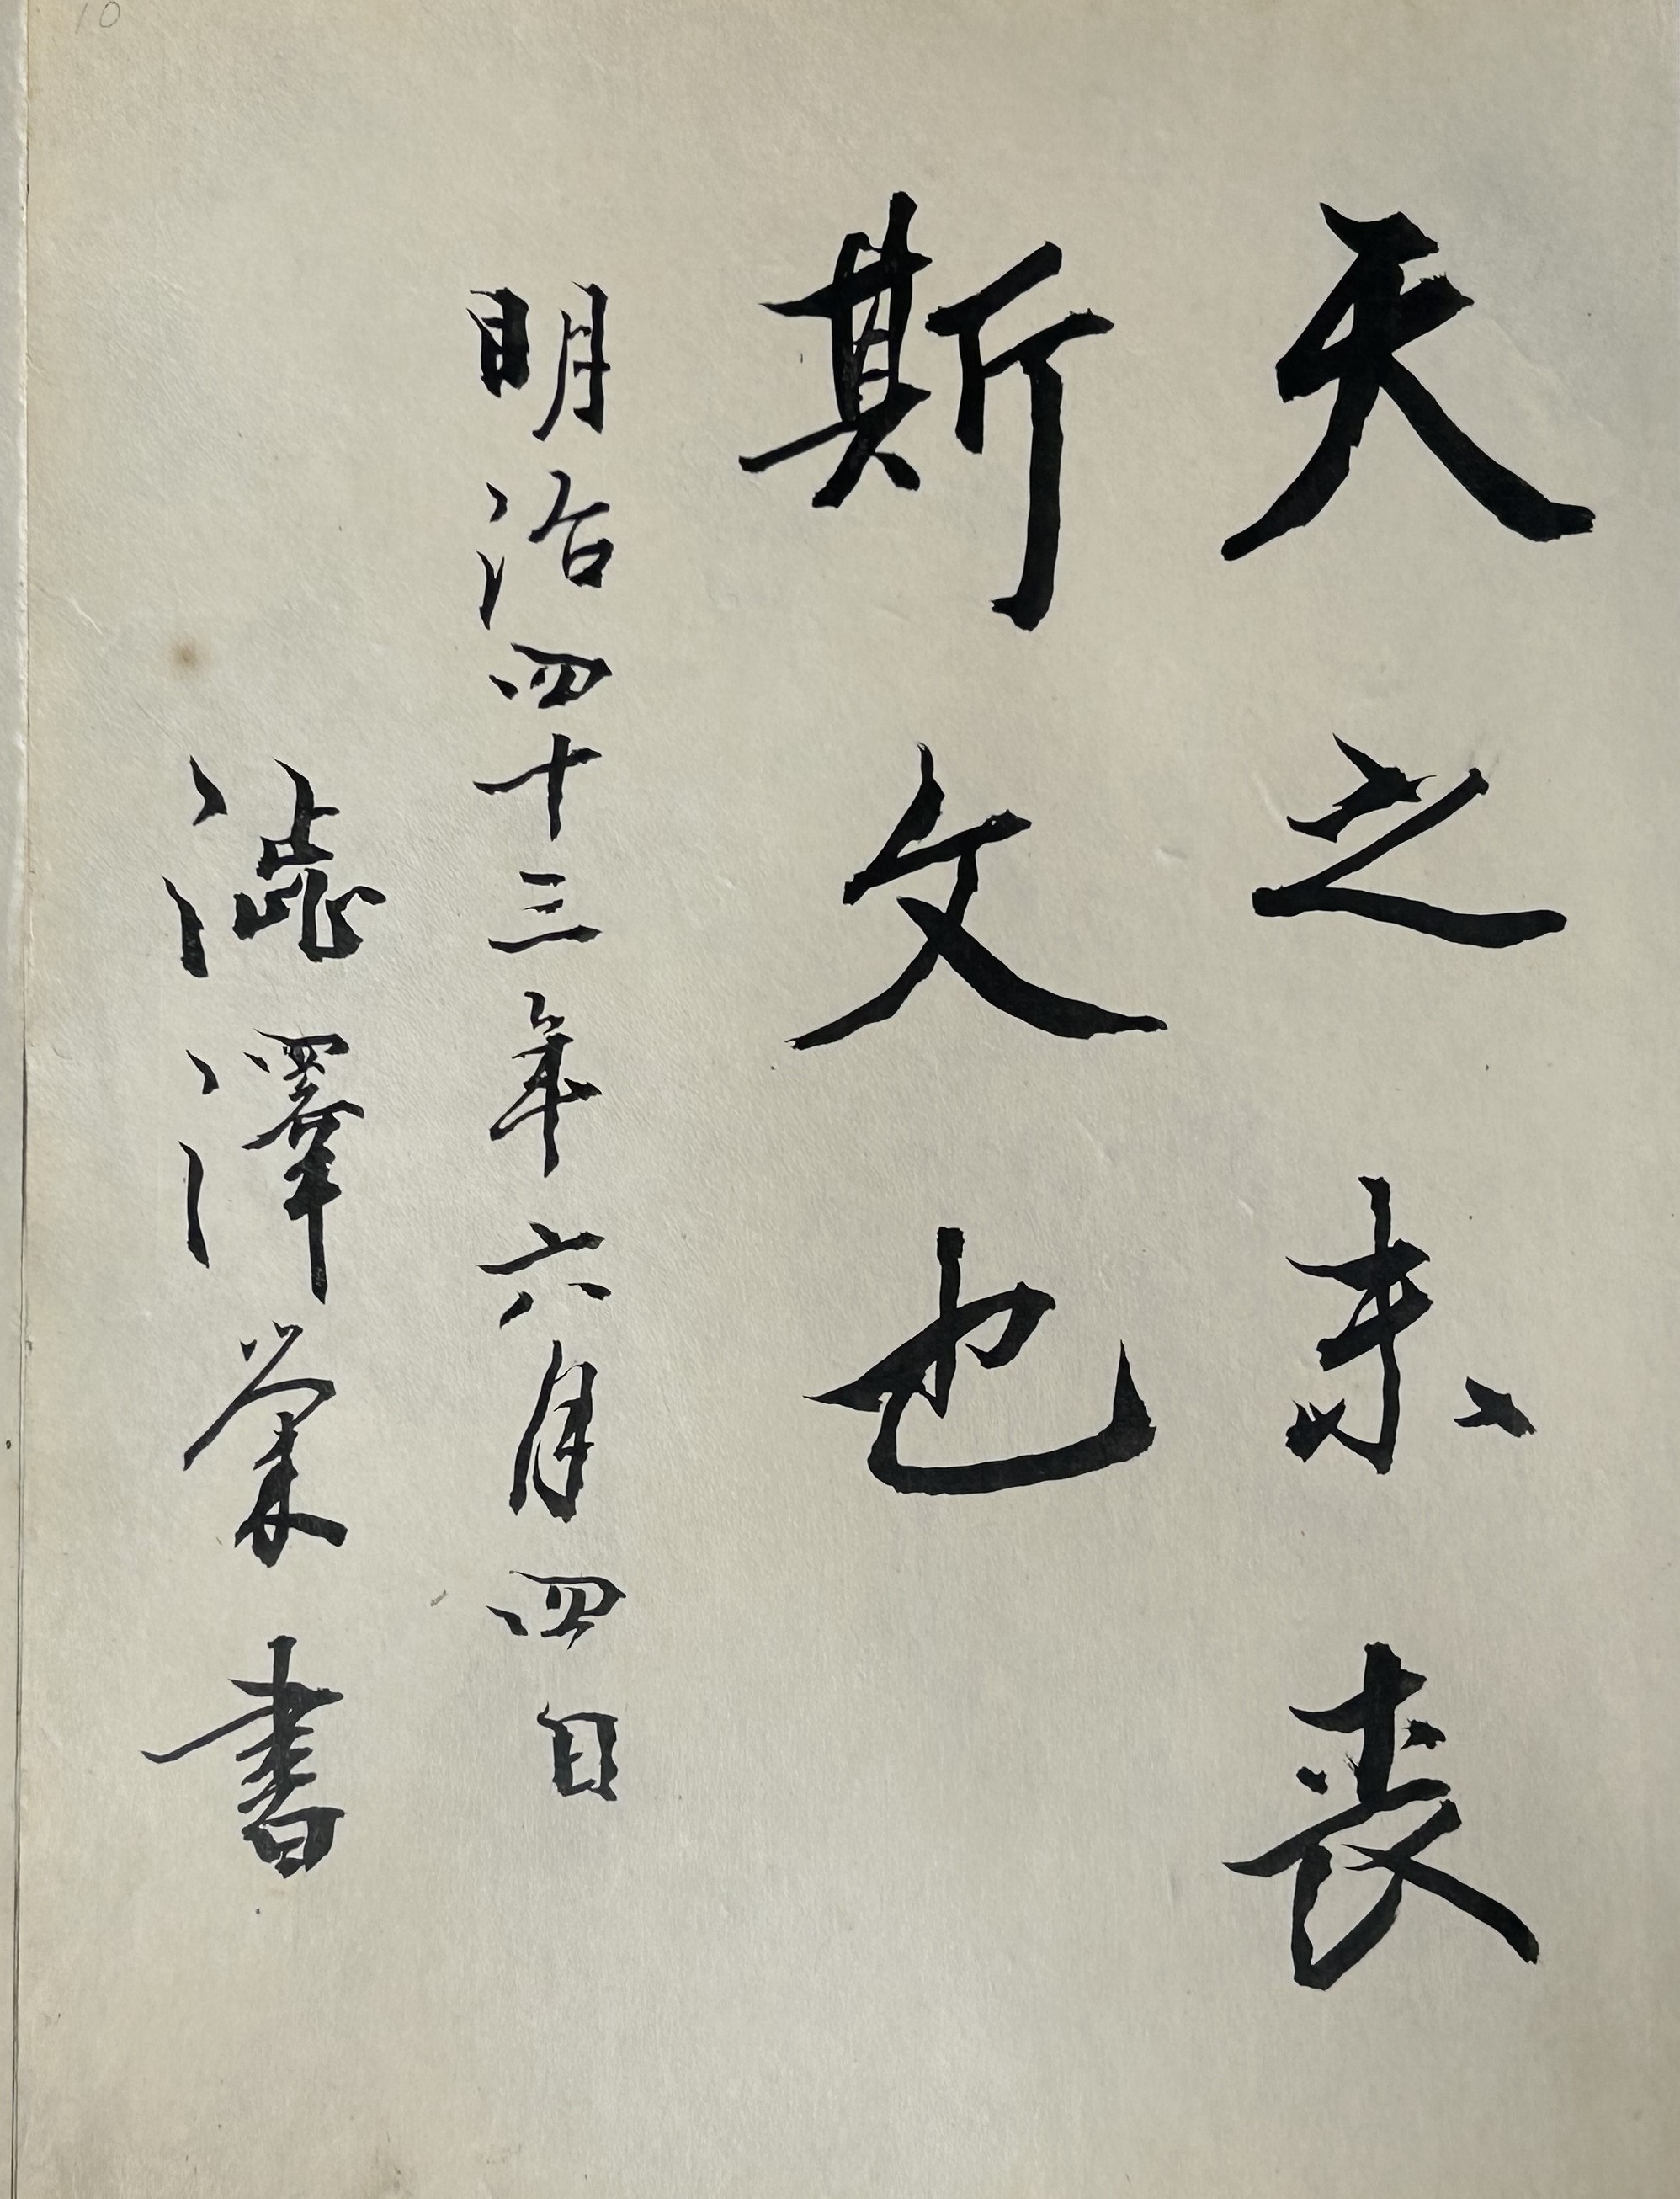 天之未喪
斯文也
明治四十三年六月四日
澁澤榮一書
10